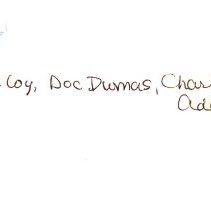 Coy, Doc Dumas, Char
Ad